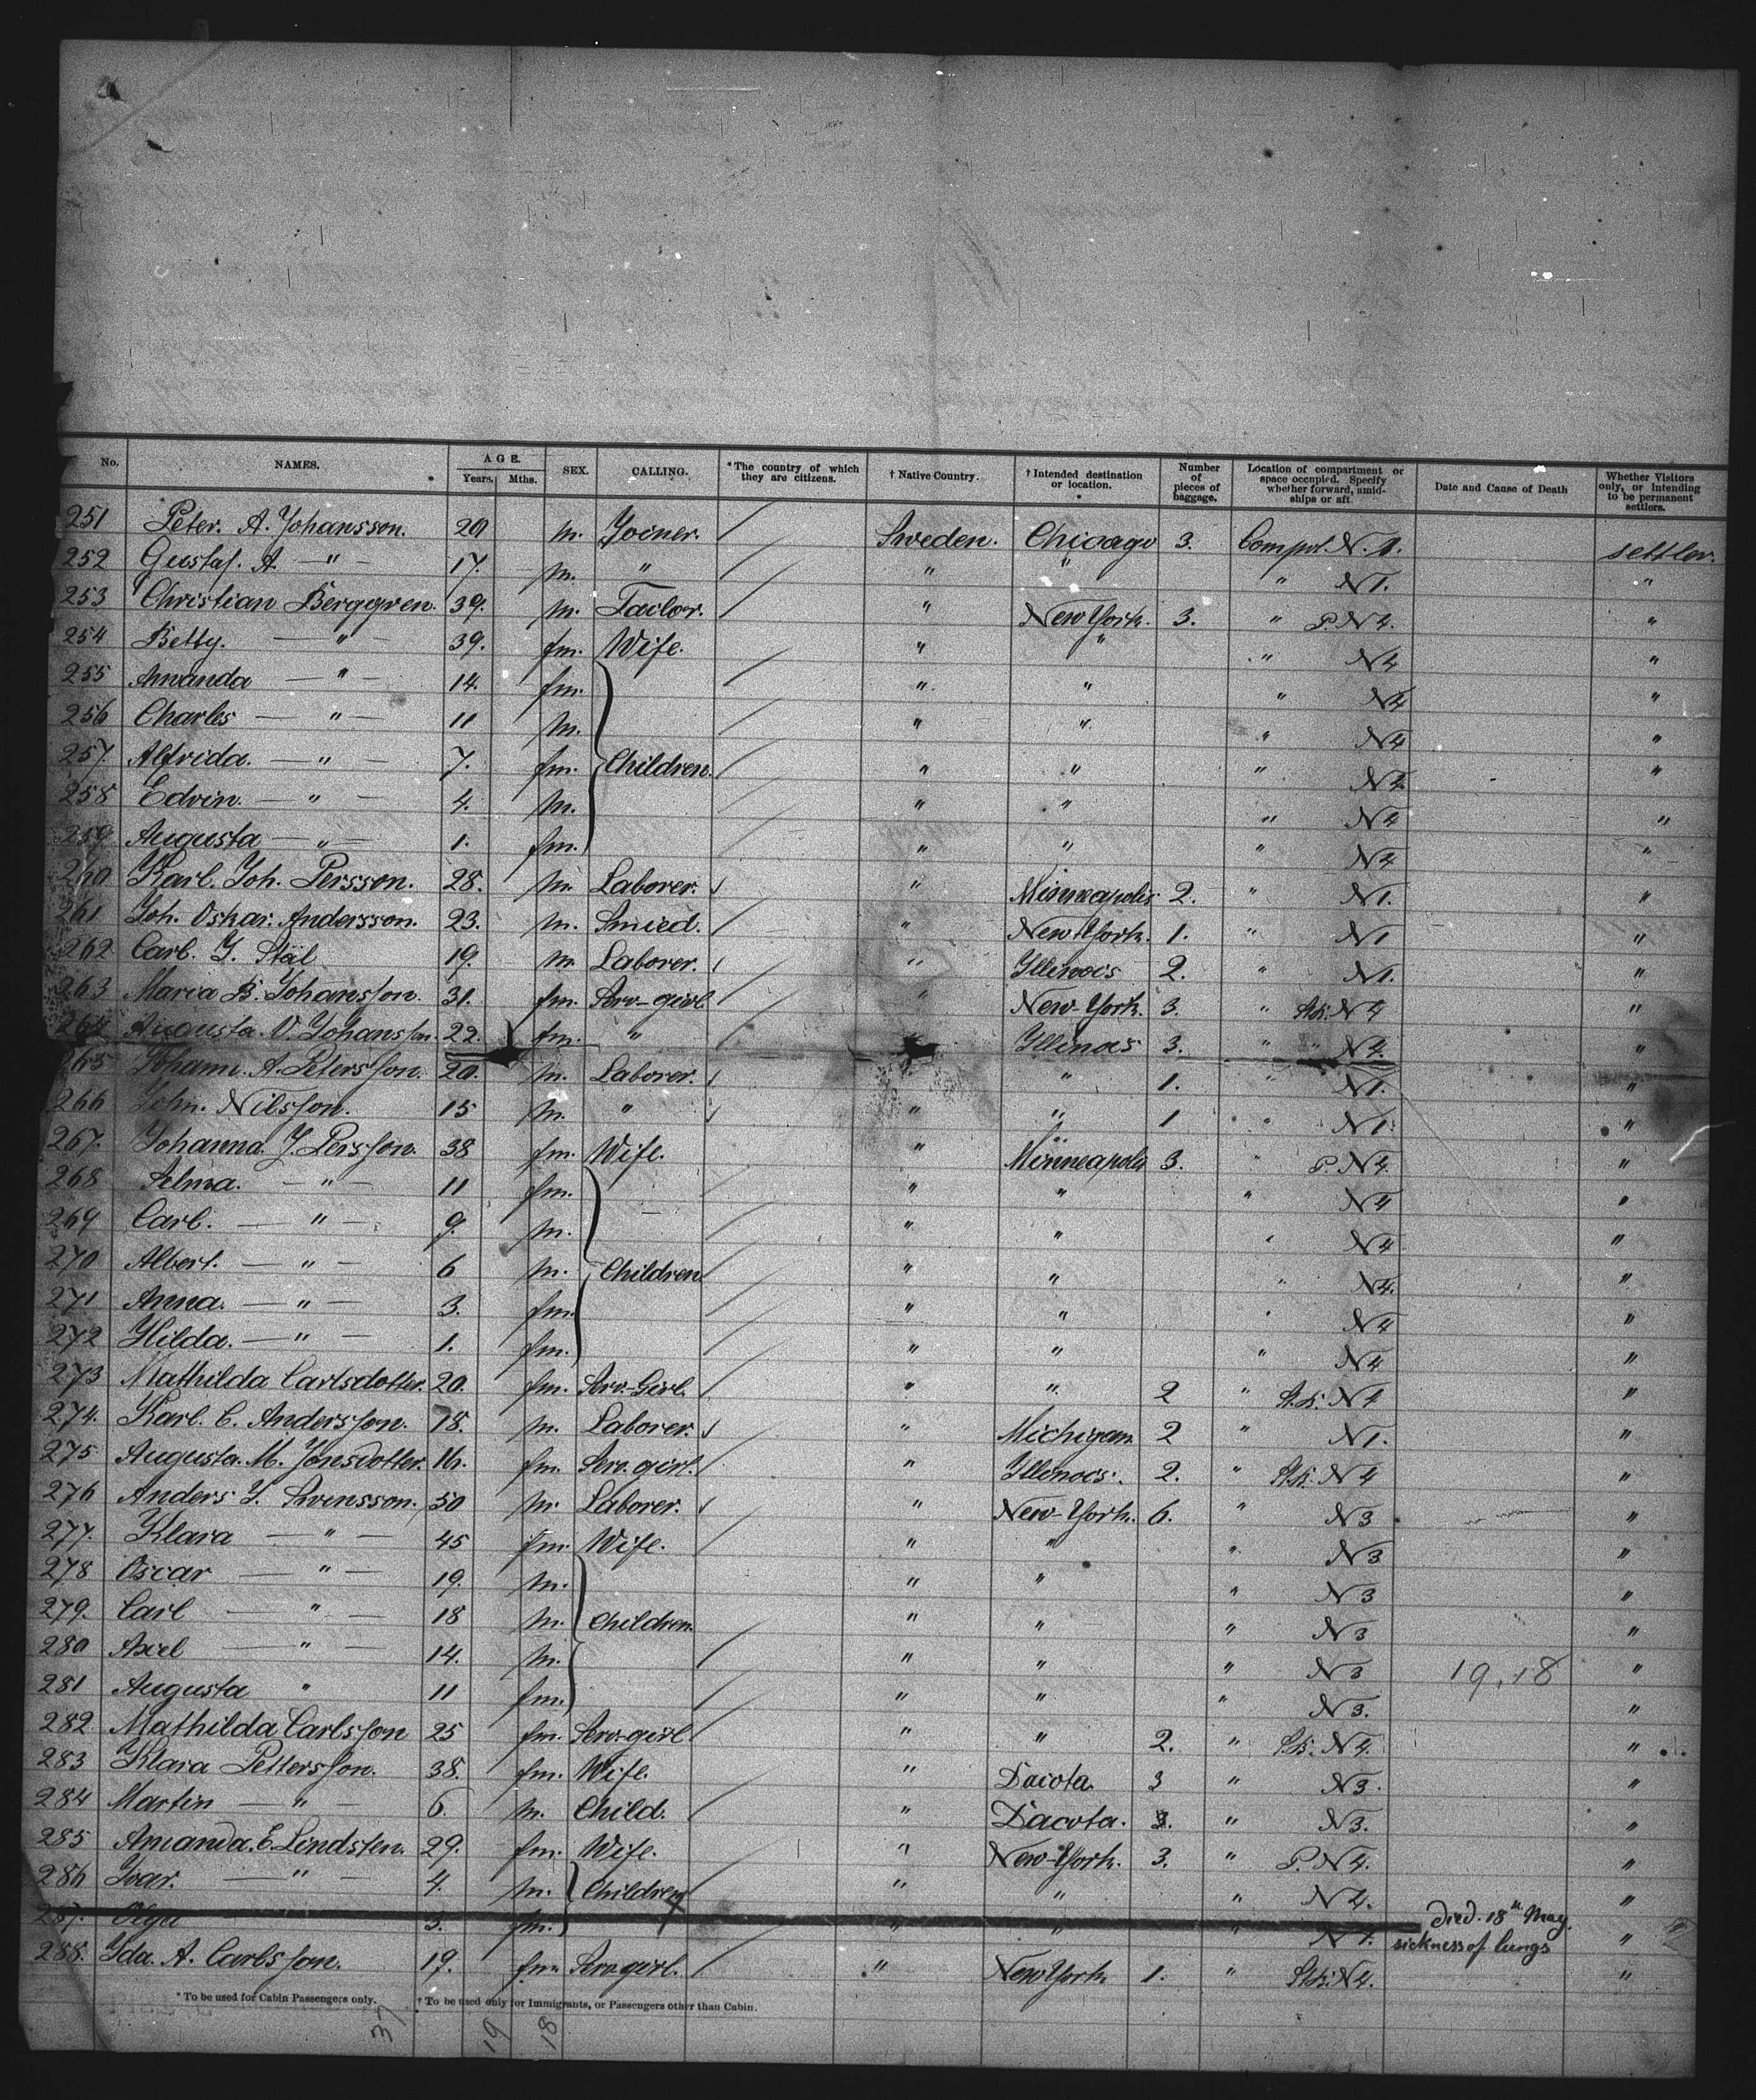 No. NAMES. AGE. Years. Mths. SEX. CALLING. *The country of which they are citizens. † Native Country. † Intended destination or location. Number of pieces of baggage. Location of compartment or space occupied. Specify whether forward, amidships or aft. Date and Cause of Death Whether Visitors only, or Intending to be permanent settlers.
251 Peter. A. Johansson. 20 m. Joiner. Sweden. Chicago 3. Compt. N. 1. settler.
252 Gustaf. A. — " — 17. m. " " " " N 1. "
253 Christian Berggren. 39. m. Tailor. " New York. 3. " P. N 4. "
254 Betty. — " — 39. fm. Wife. " " " N 4 "
255 Amanda — " — 14. fm. " " " N 4 "
256 Charles — " — 11 m. " " " N 4 "
257. Alfrida. — " — 7. fm. Children. " " " N 4 "
258 Edvin. — " — 4. m. " " " N 4 "
259 Augusta — " — 1. fm. " " " N 4 "
260 Karl. Joh. Persson. 28. m. Laborer. " Minneapolis 2. " N 1. "
261 Joh. Oskar. Andersson. 23. m. Smied. " New York. 1. " N 1 "
262 Carl. J. Stål 19. m Laborer. " Illinois 2. " N 1. "
263 Maria B. Johansson. 31. fm. Serv-girl. " New-York. 3. " N 4 "
264 Augusta. V. Johansson. 22. fm. " Illinois 3. " " N 4. "
265 Johann. A. Petersson. 20. m. Laborer. " " 1. " N 1. "
266 John. Nilsson. 15 m. " " " 1 " N 1. "
267. Johanna. J. Persson. 38 fm. Wife. " Minneapolis 3. " P. N 4. "
268 Selma. — " — 11 fm. " " " N 4 "
269 Carl. — " — 9. m. " " " N 4 "
270 Albert. — " — 6 m. Children " " " N 4. "
271 Anna. — " — 3. fm. " " " N 4 "
272 Hilda. — " — 1. fm. " " " N 4 "
273 Mathilda Carlsdotter. 20. fm. Serv-Girl. " " 2 " N 4 "
274. Karl. C. Andersson. 18. m. Laborer. " Michigan 2 " N 1. "
275 Augusta. M. Jonesdotter. 16. fm. Serv. girl. " Illinois. 2. " N 4 "
276 Anders J. Svensson. 50 m. Laborer. " New-York. 6. " N 3 "
277. Klara — " — 45 fm. Wife. " " " N 3 "
278 Oscar — " — 19. m. " " " N 3 "
279. Carl — " — 18 m. Children. " " " N 3 "
280 Axel — " — 14. m. " " " N 3 19, 18 "
281 Augusta " 11 fm. " " " N 3. "
282 Mathilda Carlsson 25 fm. Serv-girl " " 2. " N 4. "
283 Klara Pettersson. 38. fm. Wife. " Dacota. 3 " N 3. "
284 Martin — " — 6. m. Child. " Dacota. " N 3. "
285 Amanda. E. Lindsten. 29. fm. Wife. " New-York. 3. " P. N 4. "
286 Ivar. — " — 4. m. Children " " " N 4. "
287. Olga 3. fm. " " " N 4. died. 18th May. sickness of lungs "
288. Ida. A. Carlsson. 19. fm Serv girl. " New York 1. " N 4. "
* To be used for Cabin Passengers only. † To be used only for Immigrants, or Passengers other than Cabin.
37 19 18